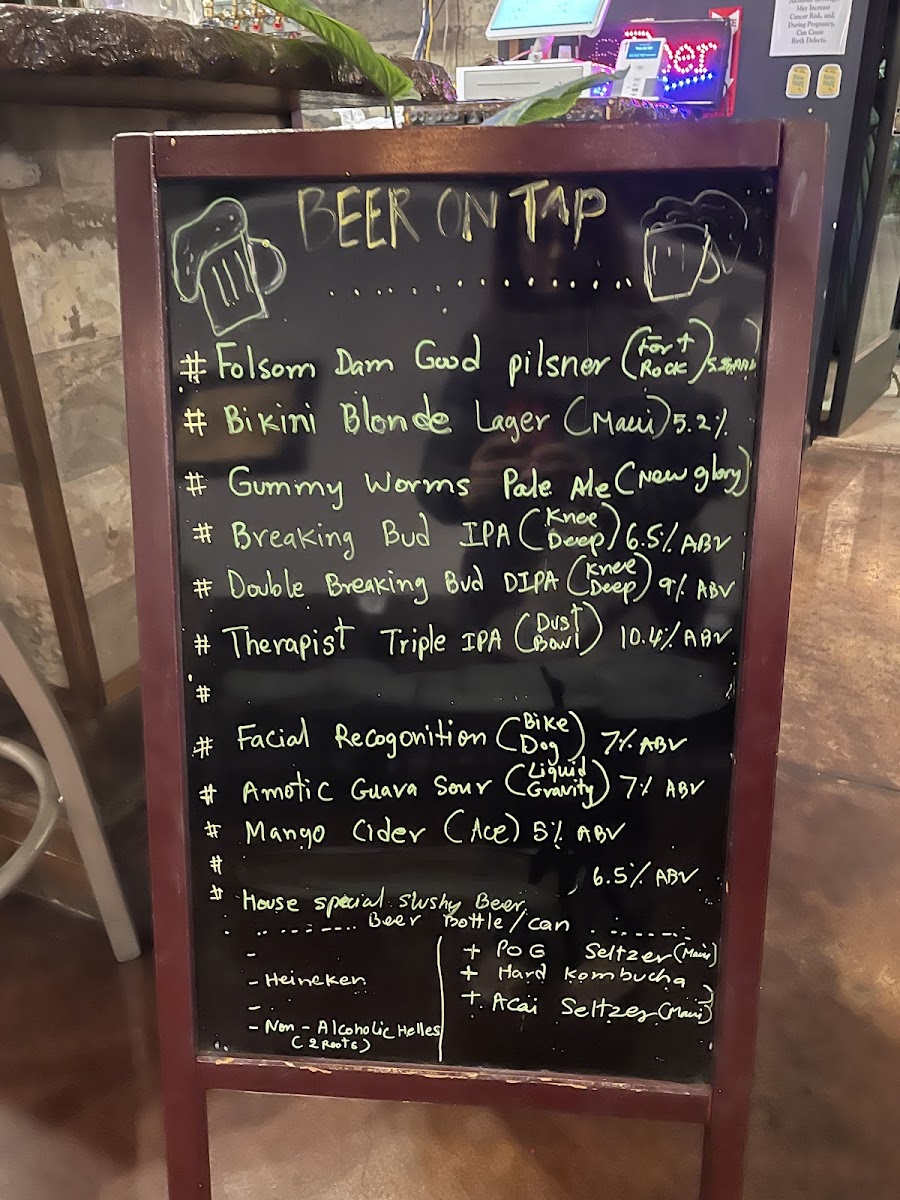 May Increase
Cancer Risk, and,
During Pregnancy,
Can Cause
Birth Defects.
BEER ON TAP
# Folsom Dam Good pilsner (Fort Rock)
# Bikini Blonde Lager (Maui) 5.2%
# Gummy Worms Pale Ale (New glory)
# Breaking Bud IPA (Knee Deep) 6.5% ABV
# Double Breaking Bud DIPA (Knee Deep) 9% ABV
# Therapist Triple IPA (Dust Bowl) 10.4% ABV
#
# Facial Recogonition (Bike Dog) 7% ABV
# Amotic Guava Sour (Liquid Gravity) 7% ABV
# Mango Cider (Ace) 5% ABV
# , 6.5% ABV
# House special slushy Beer
Beer Bottle/can
-
- Heineken
-
- Non-Alcoholic Helles
(2 Roots)
+ POG Seltzer (Maui)
+ Hard Kombucha
+ Acai Seltzer (Maui)